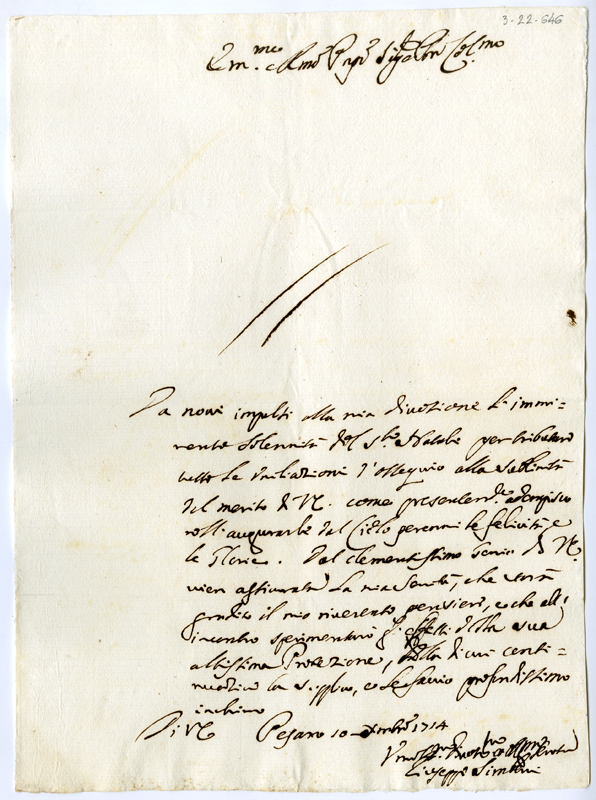 3-22-646
Em.mo Rmo Sig.r Pne Col.mo
Da novi impulsi alla mia divotione l'immi=
nente solennità del S.to Natale per tributare
tutte le d'ossequio alla sublimità
del merito di V.E. come adempisco
coll'augurarle dal Cielo perenni le felicità, e
le Glorie. Dal clementissimo Genio di V.E.
vien assicurata la mia servitù, che sarà
gradito il mio riverente pensiere, e che all'
incontro sperimenterò gl'effetti della sua
altissima Protezione, della di cui conti=
nuatione la supplico, e le faccio profondissimo
inchino
Di V.E. Pesaro 10 Xmbre 1714
Giuseppe